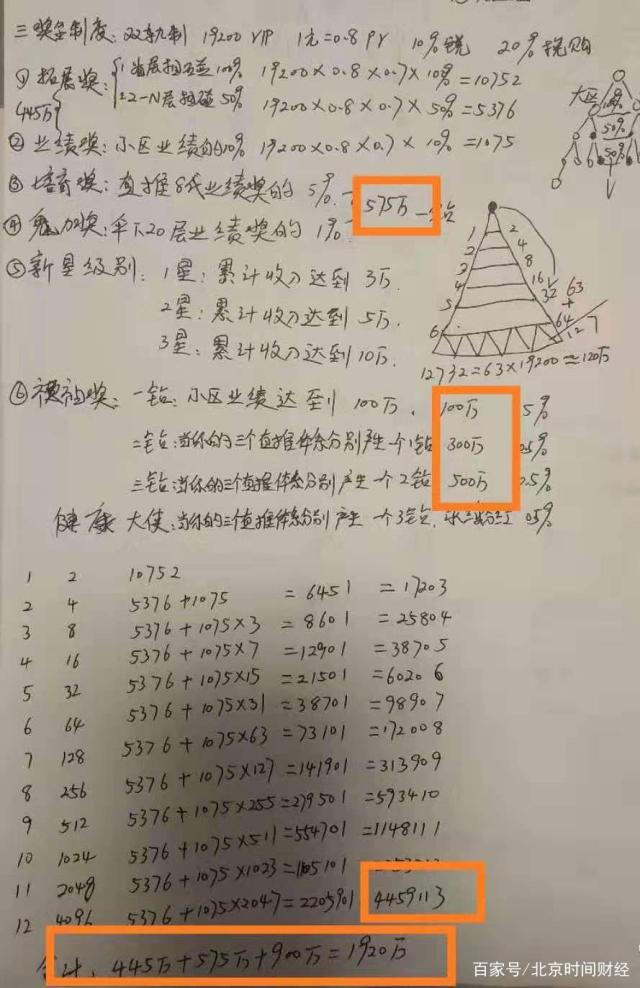 三奖金制度: 双轨制 19200 VIP 1元=0.8 PV 10%税 20%
①拓展奖: 1 首层相互碰 100% 19200×0.8×0.7×10%=10752
445万 2 2-N层相碰 50% 19200×0.8×0.7×50%=5376
②业绩奖: 小区业绩的10% 19200×0.8×0.7×10%=1075
③培育奖: 直推8代业绩奖的 5%
575万 一钻
④魅力奖: 伞下20层业绩奖的 1%
⑤新星级别: 1星: 累计收入达到 3万.
2星: 累计收入达到 5万.
3星: 累计收入达到 10万.
大区
100%
50%
50%
1 2
2 4
3 8
4 16
5 32
6 64
63
+
127
127 32=63×19200≈120万
⑥ 一钻: 小区业绩达到 100万. 100万 5%
二钻: 当你的三个直推体系分别产生一个1钻 300万 0.5%
三钻: 当你的三个直推体系分别产生一个2钻 500万 0.5%
健康大使: 当你的三个直推体系分别产生一个3钻, 0.5%
1 2 10752
2 4 5376+1075 =6451 =17203
3 8 5376+1075×3 =8601 =25804
4 16 5376+1075×7 =12901 =38705
5 32 5376+1075×15 =21501 =60206
6 64 5376+1075×31 =38701 =98907
7 128 5376+1075×63 =73101 =172008
8 256 5376+1075×127 =141901 =313909
9 512 5376+1075×255 =279501 =593410
10 1024 5376+1075×511 =554701 =1148111
11 2048 5376+1075×1023 =1105101
12 4096 5376+1075×2047 =2205901 4459113
合计: 445万+575万+900万=1920万
百家号/北京时间财经